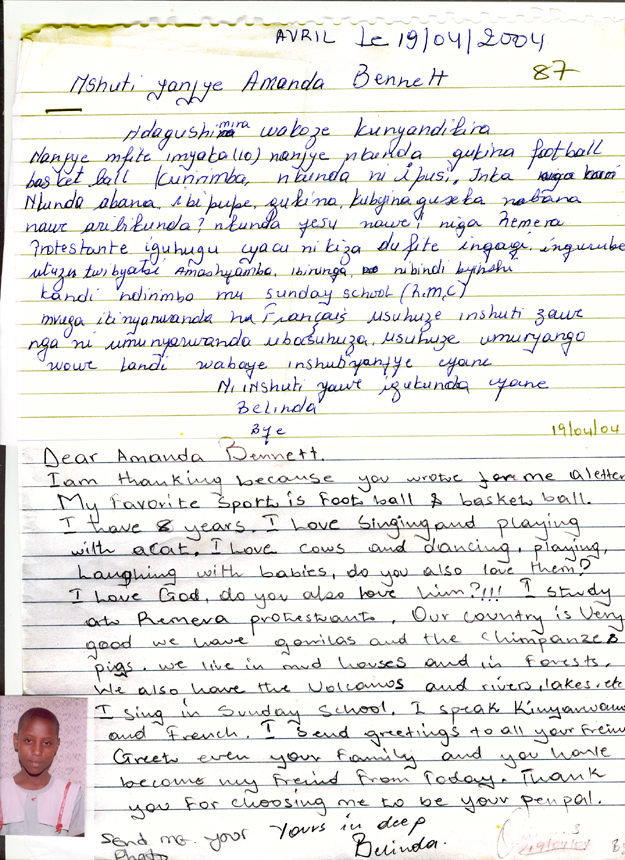 AVRIL Le 19/04/2004
Mshuti yanjye Amanda Bennett 87
Ndagushimira wakoze kunyandikira
Nanjye mfite imyaka (10) nanjye nkunda gukina football
basket ball kuririmba, nkunda ni ipusi, Inka
Nkunda abana, ibipupe, gukina, kubyina guseka nabana
nawe aribikunda? nkunda yesu nawe? niga Remera
Protestante igihugu cyacu nikiza dufite ingagi, ingurube
utuzu twibyatsi Amashyamba, ibirunga, nibindi byinshi
kandi ndirimba mu Sunday school (h.m.c)
mvuga ikinyarwanda na Français usuhuze inshuti zawe
nga ni umunyarwanda ubasuhuza, usuhuze umuryango
wowe kandi wabaye inshuti yanjye cyane
Ni inshuti yawe igukunda cyane
Belinda
Bye
19/04/04
Dear Amanda Bennett.
I am thanking because you wrote for me a letter
My Favorite Sport is Foot ball & basket ball.
I have 8 years. I Love Singing and playing
with a cat. I Love cows and dancing, playing,
Laughing with babies, do you also love them?
I Love God, do you also love him?!!! I study
at Remera protestant. Our country is Very
good we have gorrilas and the Chimpanzes
pigs. we live in mud houses and in Forests.
We also have the Volcanos and rivers, lakes, etc
I Sing in Sunday School. I speak Kinyarwand
and French. I send greetings to all your Freind
Greet even your Family and you have
become my Freind From Today. Thank
you For choosing me to be your penpal.
Send me your Yours in deep
Photo Belinda.
19/04/04